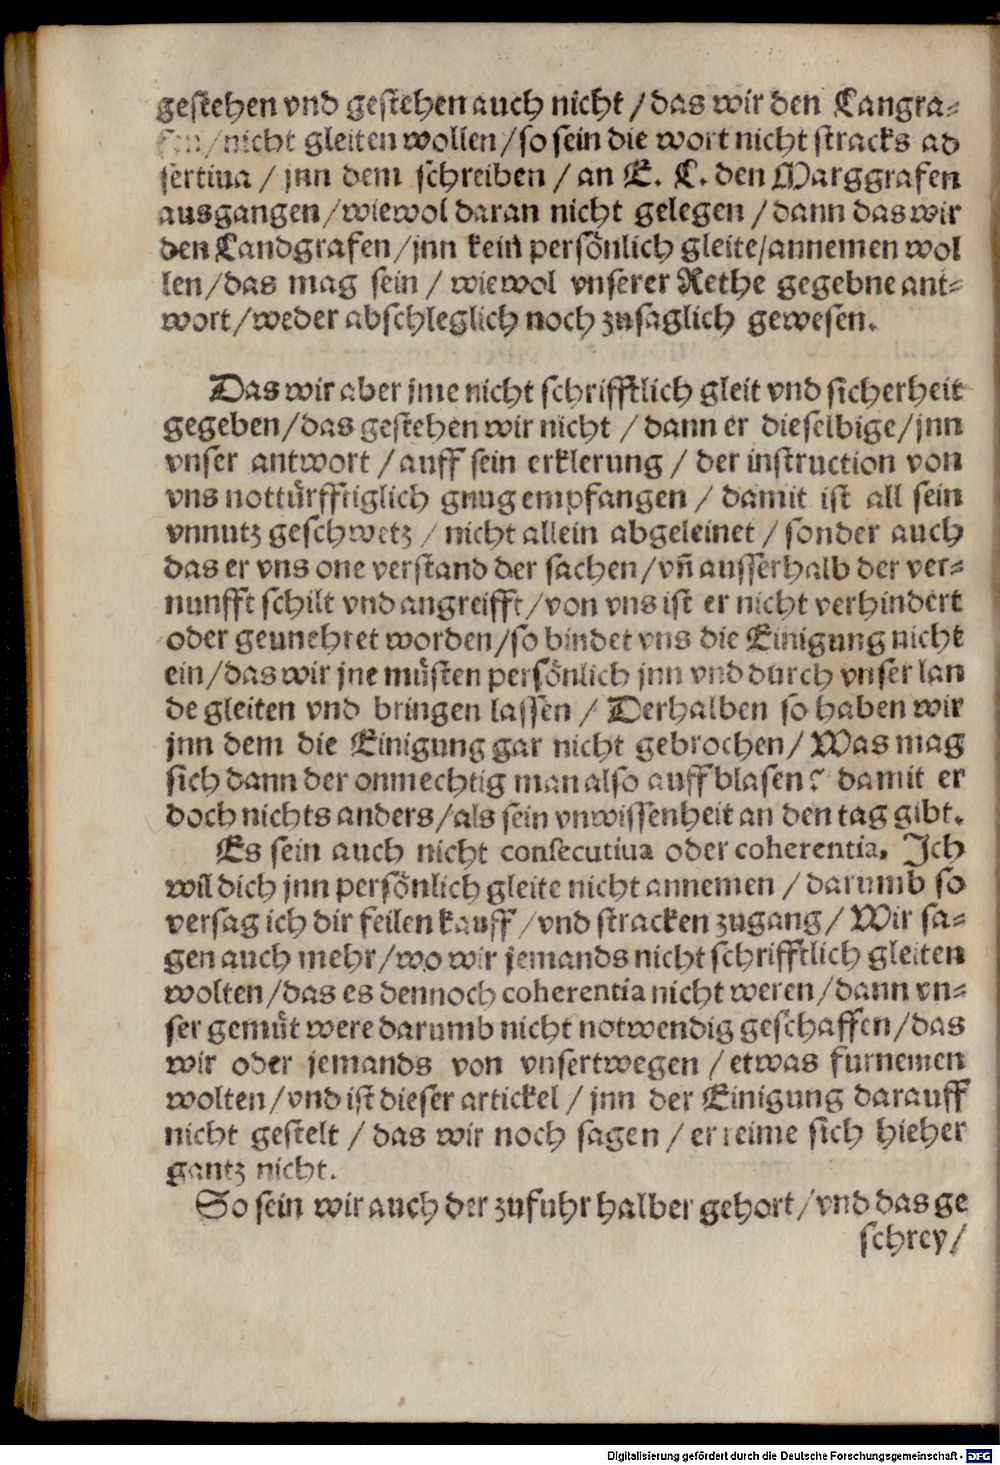 gestehen vnd gestehen auch nicht / das wir den Langra-
fen / nicht gleiten wollen / so sein die wort nicht stracks ad
sertiua / jnn dem schreiben / an E. L. den Marggrafen
ausgangen / wiewol daran nicht gelegen / dann das wir
den Landgrafen / jnn kein persönlich gleite / annemen wol
len / das mag sein / wiewol vnserer Rethe gegebne ant-
wort / weder abschleglich noch zusaglich gewesen.
Das wir aber jme nicht schrifftlich gleit vnd sicherheit
gegeben / das gestehen wir nicht / dann er dieselbige / jnn
vnser antwort / auff sein erklerung / der instruction von
vns nottürfftiglich gnug empfangen / damit ist all sein
vnnutz geschwetz / nicht allein abgeleinet / sonder auch
das er vns one verstand der sachen / vñ ausserhalb der ver-
nunfft schilt vnd angreifft / von vns ist er nicht verhindert
oder geunehret worden / so bindet vns die Einigung nicht
ein / das wir jne müsten persönlich jnn vnd durch vnser lan
de gleiten vnd bringen lassen / Derhalben so haben wir
jnn dem die Einigung gar nicht gebrochen / Was mag
sich dann der onmechtig man also auff blasen? damit er
doch nichts anders / als sein vnwissenheit an den tag gibt.
Es sein auch nicht consecutiua oder coherentia. Ich
wil dich jnn persönlich gleite nicht annemen / darumb so
versag ich dir feilen kauff / vnd stracken zugang / Wir sa-
gen auch mehr / wo wir jemands nicht schrifftlich gleiten
wolten / das es dennoch coherentia nicht weren / dann vn-
ser gemüt were darumb nicht notwendig geschaffen / das
wir oder jemands von vnsertwegen / etwas furnemen
wolten / vnd ist dieser artickel / jnn der Einigung darauff
nicht gestelt / das wir noch sagen / er reime sich hieher
gantz nicht.
So sein wir auch der zufuhr halber gehort / vnd das ge
schrey /
Digitalisierung gefördert durch die Deutsche Forschungsgemeinschaft - DFG